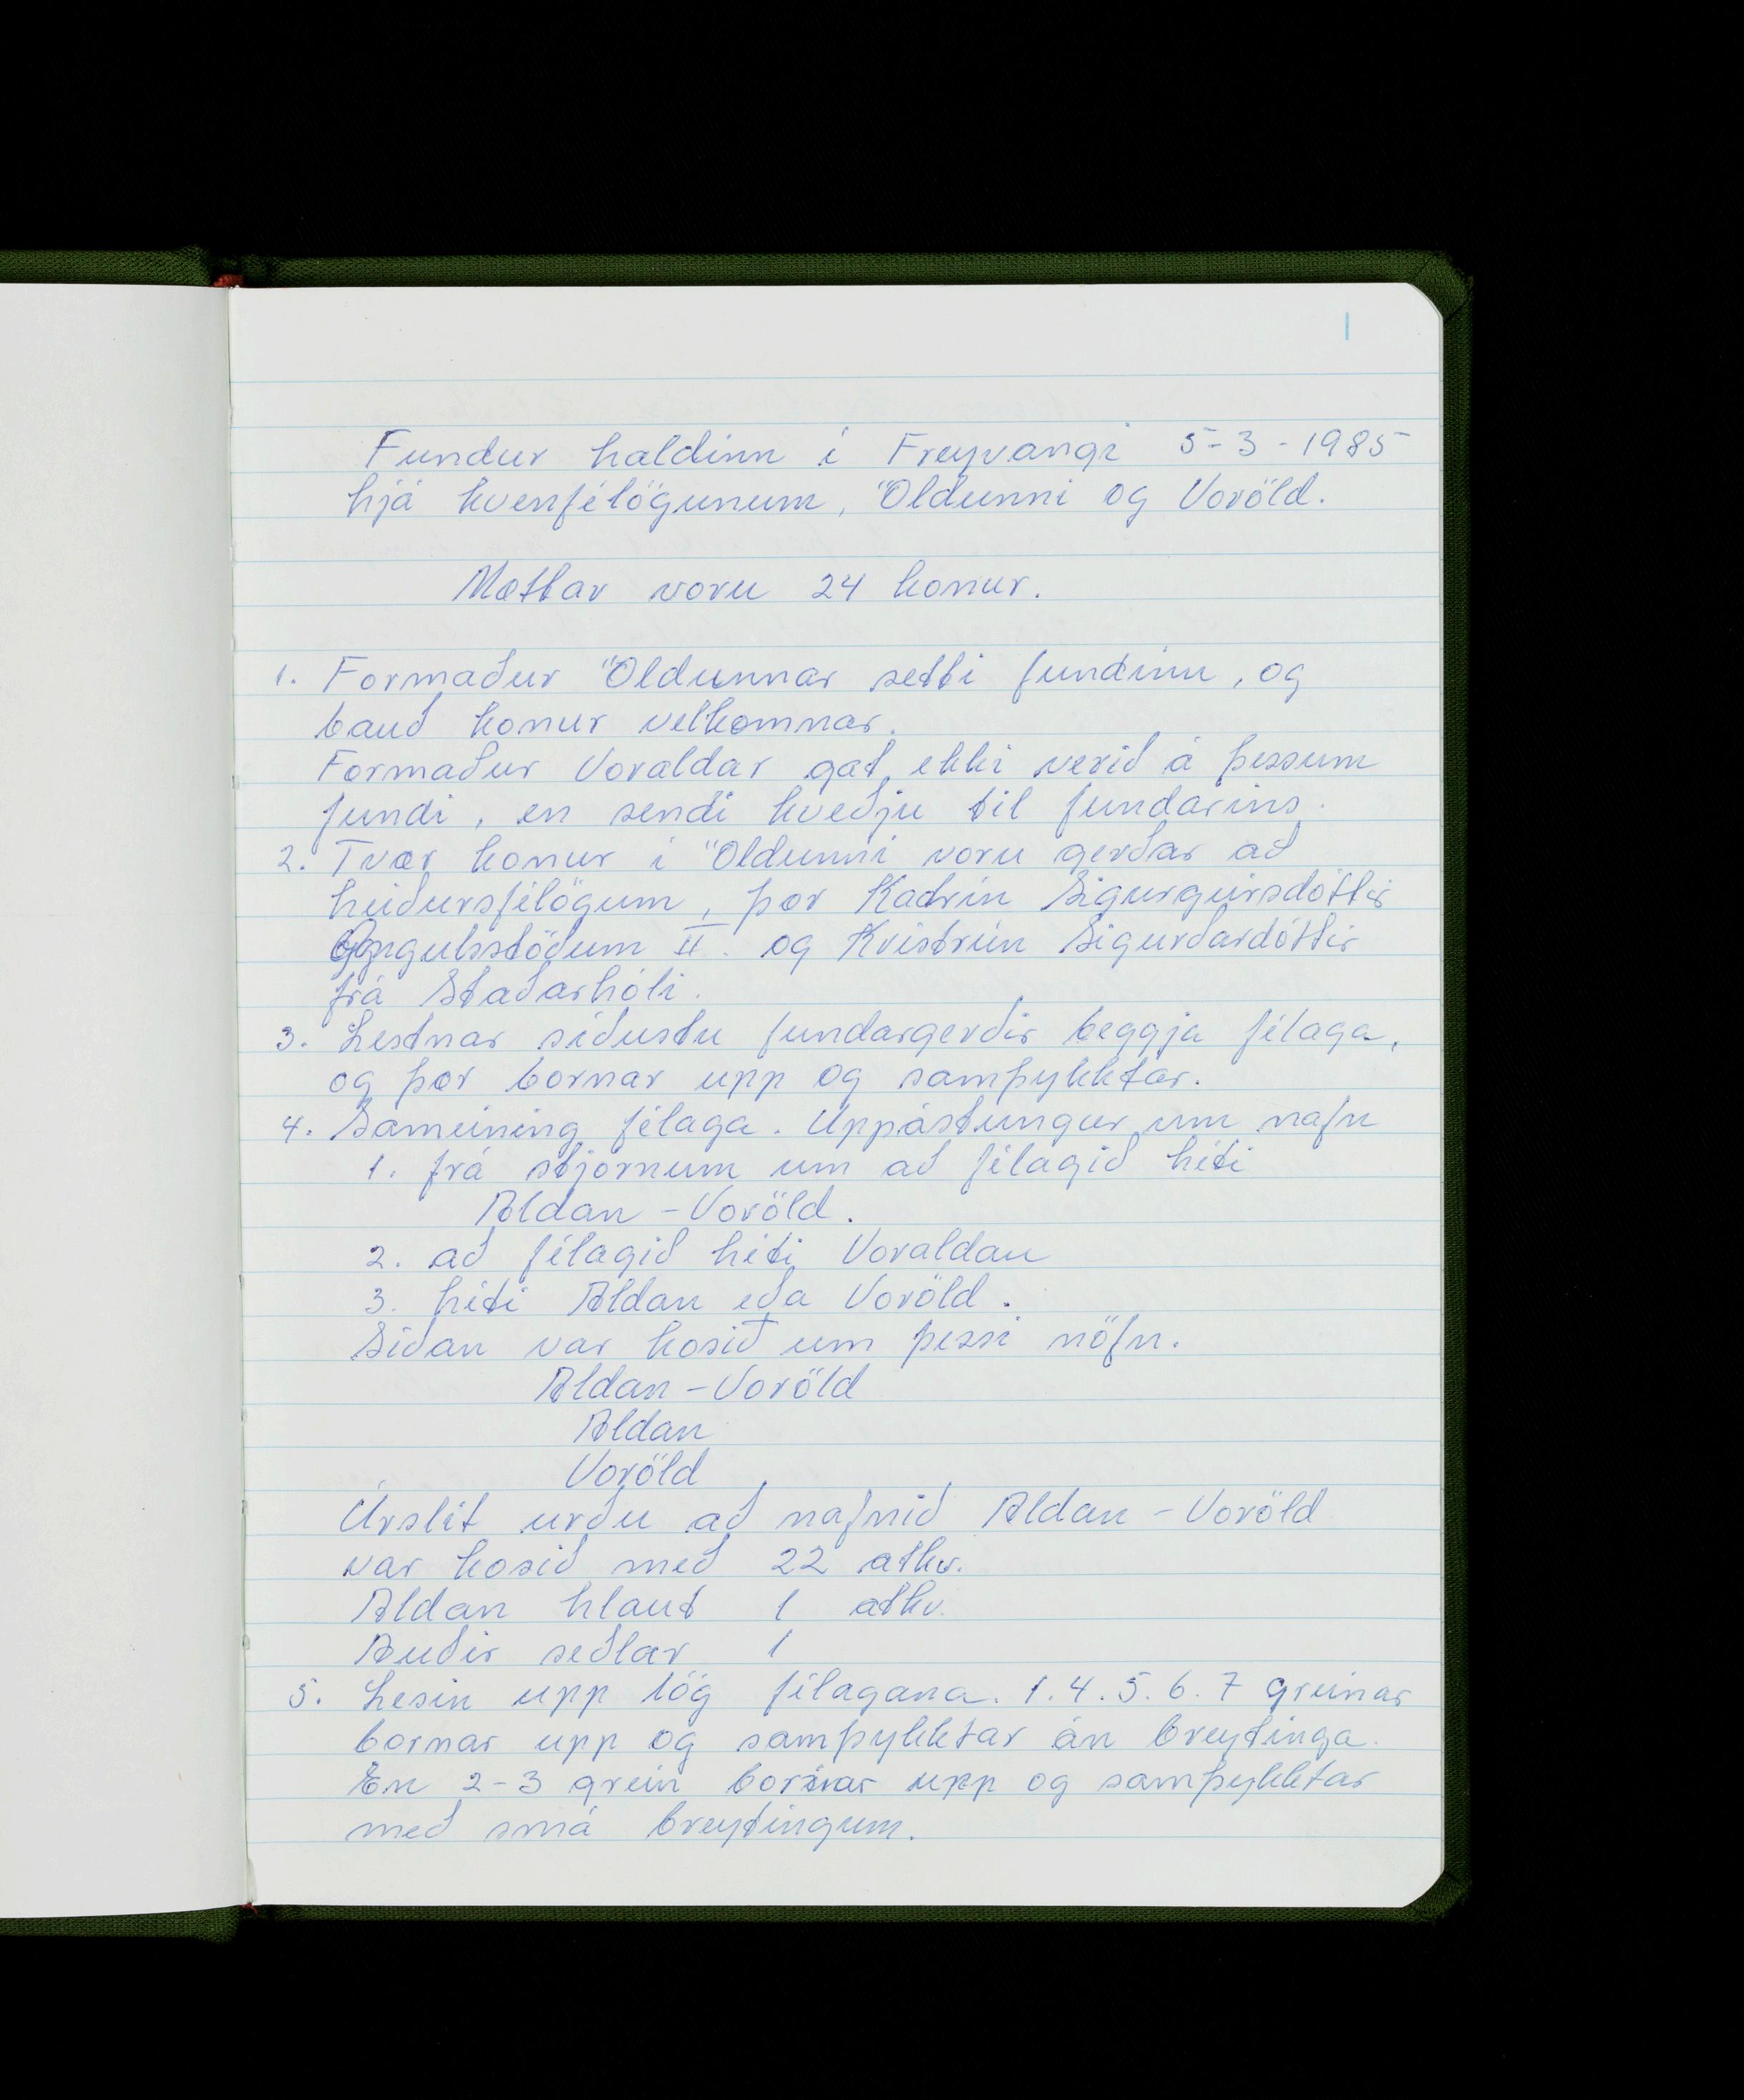 1
Fundur haldinn í Freyvangi 5-3-1985
hjá kvenfélögunum, Öldunni og Voröld.
Mættar voru 24 konur.
1. Formaður Öldunnar setti fundinn, og
bauð konur velkomnar.
Formaður Voraldar gat ekki verið á þessum
fundi, en sendi kveðju til fundarins.
2. Tvær konur í Öldunni voru gerðar að
heiðursfélögum, þær Katrín Sigurgeirsdóttir
Öngulsstöðum II. og Kristrún Sigurðardóttir
frá Staðarhóli.
3. Lestnar síðustu fundargerðir beggja félaga,
og þær bornar upp og samþykktar.
4. Sameining félaga. Uppástungur um nafn
1. frá stjórnum um að félagið héti
Aldan - Voröld.
2. að félagið héti Voraldan
3. héti Aldan eða Voröld.
Síðan var kosið um þessi nöfn.
Aldan - Voröld
Aldan
Voröld
Úrslit urðu að nafnið Aldan - Voröld
var kosið með 22 atkv.
Aldan hlaut 1 atkv.
Auðir seðlar 1
5. Lesin upp lög félagana. 1.4.5.6.7 greinar
bornar upp og samþykktar án breytinga.
En 2-3 grein bornar upp og samþykktar
með smá breytingum.